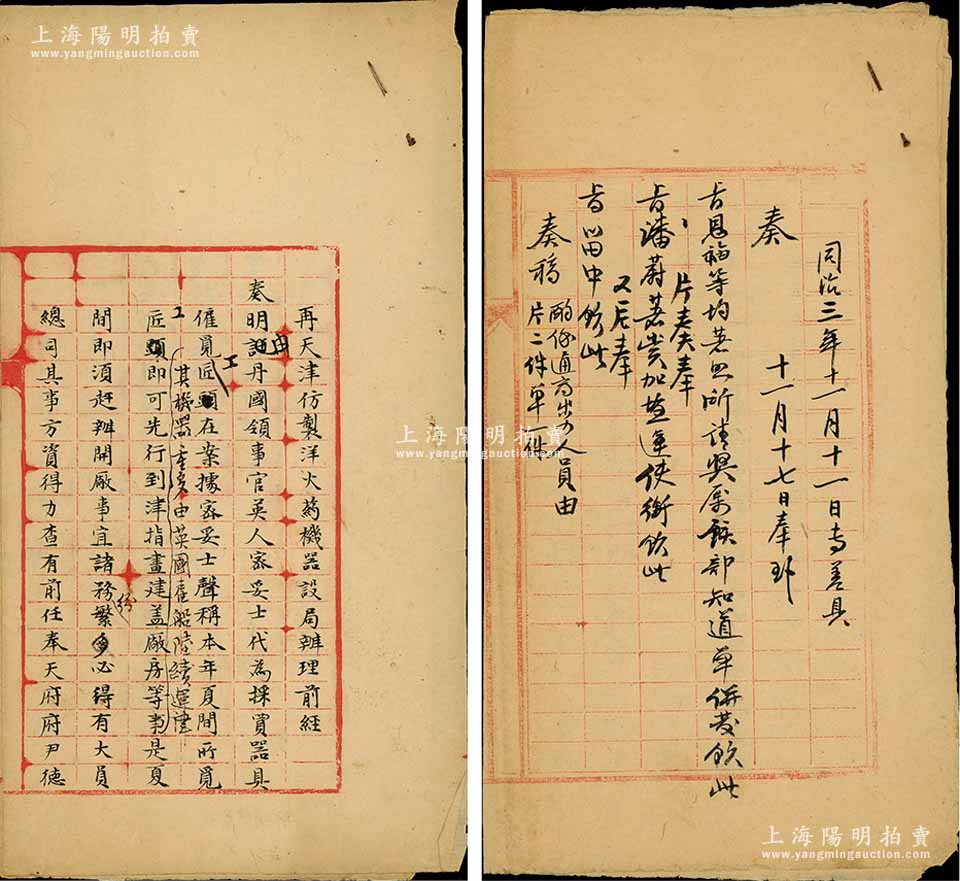 上海陽明拍賣
www.yangmingauction.com
再天津仿製洋火葯機器設局辦理前經
奏明由丹國領事官英人密妥士代為採買器具
僱覓工匠在案據密妥士聲稱本年夏間所覓
其機器重交由英國雇船陸續運津
工匠即可先行到津指畫建蓋廠房等事是夏
間即須趕辦開廠事宜諸務紛繁必得有大員
總司其事方資得力查有前任奉天府府尹德
上海陽明拍賣
www.yangmingauction.com
同治三年十一月十一日專差具
奏
十一月十七日奉到
旨恩福等均著照所請獎勵該部知道單併發欽此
片奏奉
旨潘蔚著賞加鹽運使銜欽此
又片奉
旨留中欽此
奏稿
酌保通商出力人員由
片二件單一件
上海陽明拍賣
www.yangmingauction.com